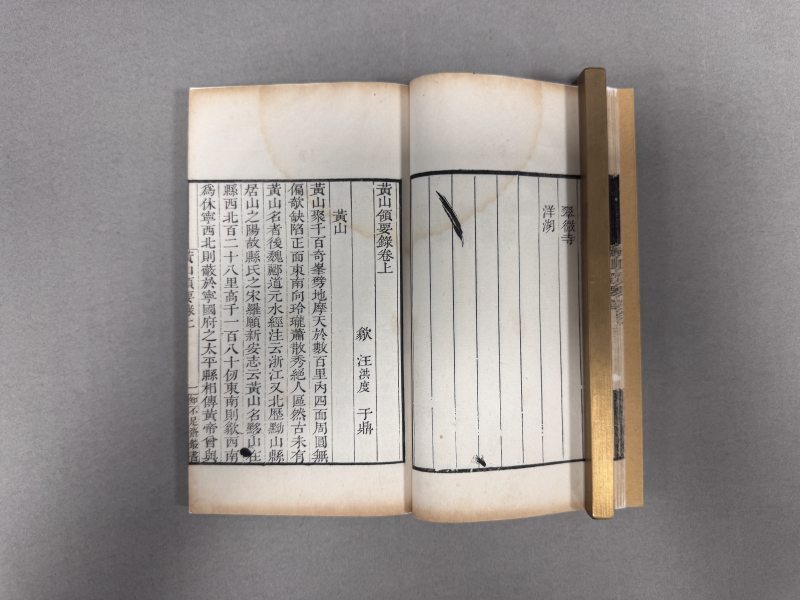 翠微寺
洋湖
黃山領要錄卷上
歙 汪洪度 于鼎
黃山
黃山聚千百奇峯劈地摩天於數百里內四面周圓無
偏欹缺陷正面東南向玲瓏蕭散秀絕人區然古未有
黃山名者後魏酈道元水經注云浙江又北歷黝山縣
居山之陽故縣氏之宋羅願新安志云黃山名黟山在
縣西北百二十八里高千一百八十仞東南則歙西南
爲休寧西北則蔽於寧國府之太平縣相傳黃帝曾與
黃山領要錄上
一知不足齋叢書